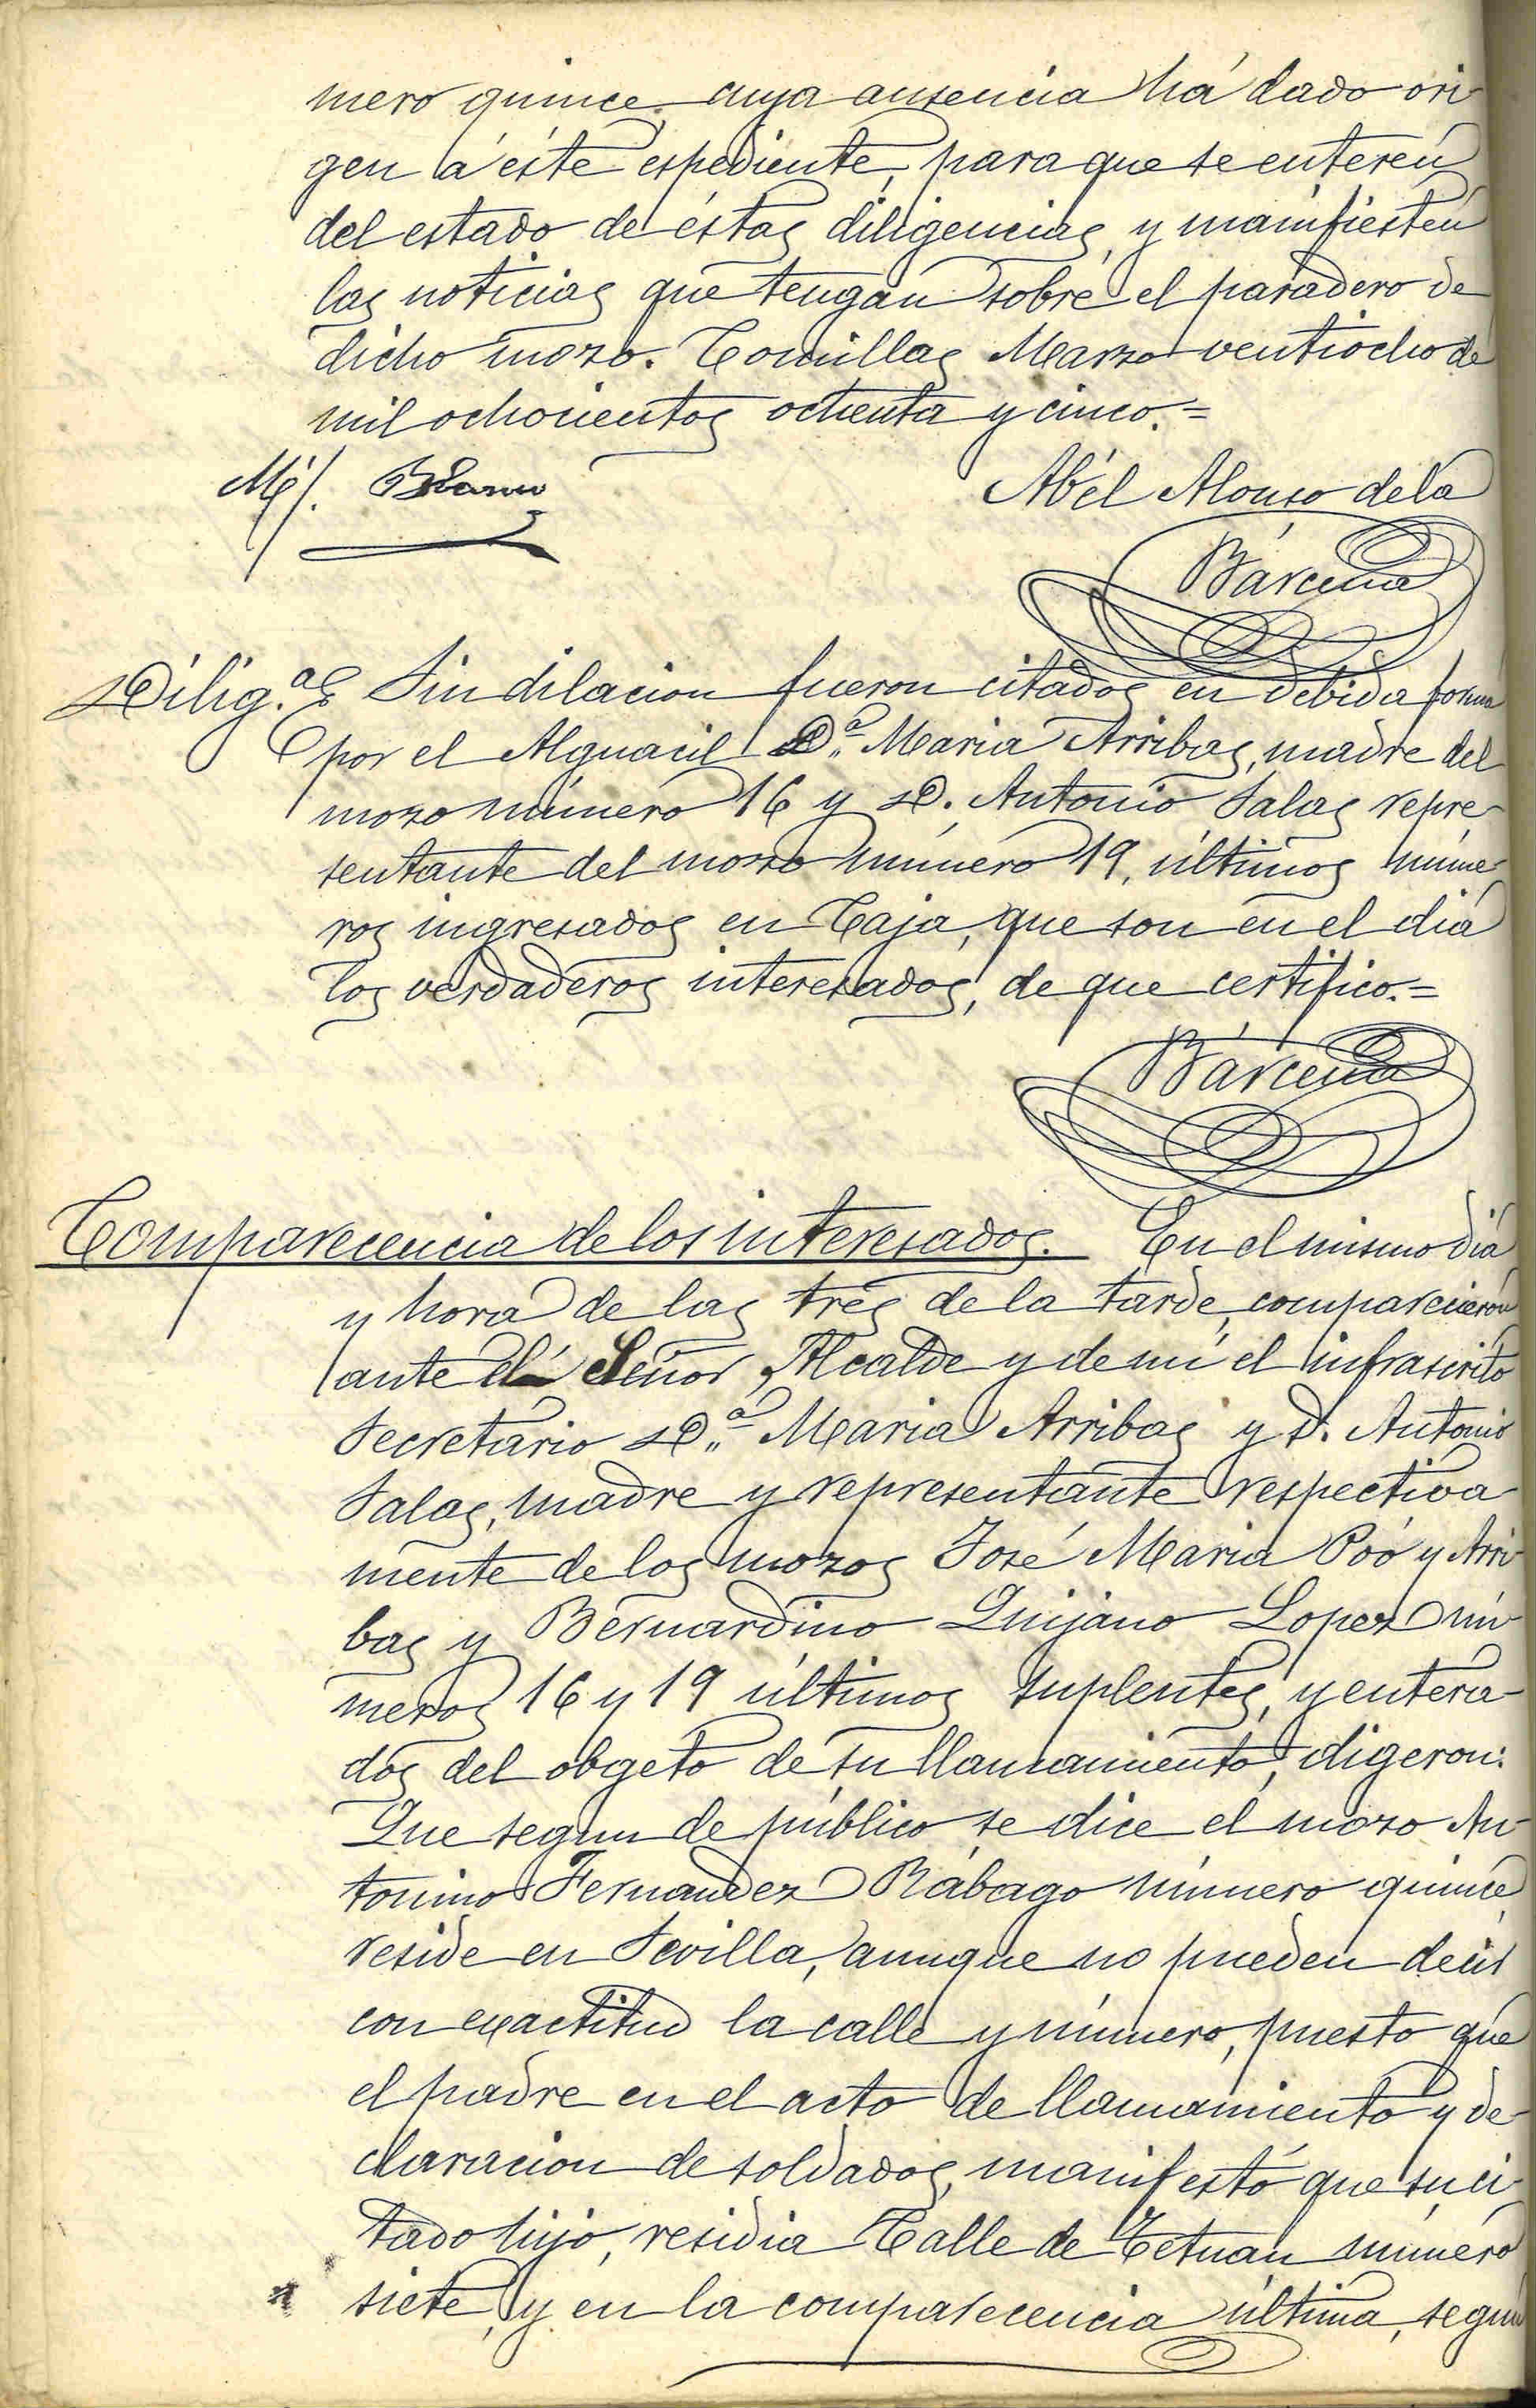 mero quince, cuya ausencia há dado ori
gen á éste espediente, para que se enteren
del estado de éstas diligencias, y manifiesten
las noticias que tengan sobre el paradero de
dicho mozo. Comillas Marzo ventiocho de
mil ochocientos ochenta y cinco.=
Abél Alonso de la
Bárcena
Dilig.ª Sin dilacion fueron citados en debida forma
por el Alguacil D.ª Maria Arribas, madre del
mozo número 16 y D. Antonio Salas repre-
sentante del mozo número 19, últimos núme-
ros ingresados en Caja, que son en el dia
los verdaderos interesados, de que certifico.=
Bárcena
Comparecencia de los interesados. En el mismo dia
y hora de las tres de la tarde, comparecieron
ante el Señor Alcalde y de mi el infrascrito
Secretario D.ª Maria Arribas y D. Antonio
Salas, madre y representante respectiva-
mente de los mozos José Maria Póo y Arri-
bas y Bernardino Quijano Lopez nú-
meros 16 y 19 últimos suplentes, y entera-
dos del obgeto de su llamamiento, digeron:
Que segun de público se dice el mozo An-
tonino Fernandez Rábago número quince,
reside en Sevilla, aunque no pueden decir
con exactitud la calle y número, puesto que
el padre en el acto de llamamiento y de-
claracion de soldados, manifestó que su ci-
tado hijo, residia Calle de Tetuan número
siete, y en la comparecencia última, segun